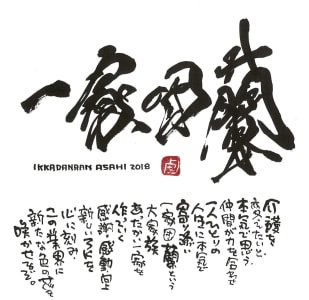 一家団蘭
IKKADANRAN ASAHI 2018
介護を
変えたいと、
本気で思う
仲間が力を合わせて
一人ひとりの
人生に本気で
寄り添い
一家団蘭という
大家族
あたたかい一家を
作っていく
感謝、感動、向上
新しい3Kを
心に刻み
この業界に
新たな色の花を
咲かせ